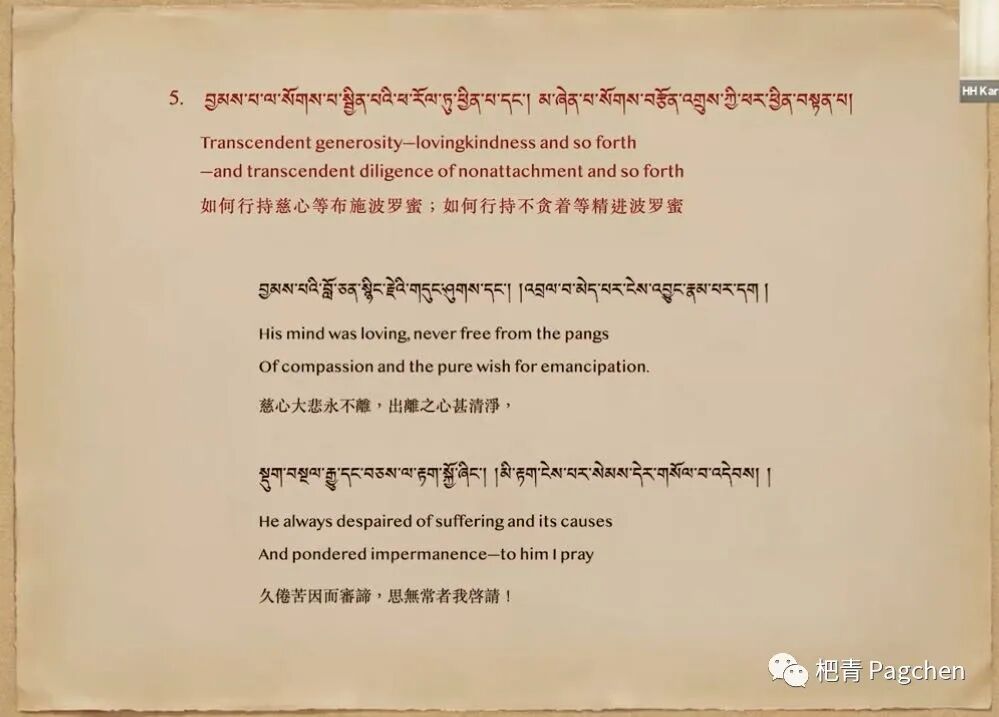 HH Kar
5. བྱམས་པ་ལ་སོགས་པ་སྦྱིན་པའི་ཕ་རོལ་ཏུ་ཕྱིན་པ་དང་། མ་ཞེན་པ་སོགས་བརྩོན་འགྲུས་ཀྱི་ཕར་ཕྱིན་བསྟན་པ།
Transcendent generosity—lovingkindness and so forth
—and transcendent diligence of nonattachment and so forth
如何行持慈心等布施波罗蜜；如何行持不贪着等精进波罗蜜
བྱམས་པའི་བློ་ཅན་སྙིང་རྗེའི་གདུང་ཤུགས་དང་། །འབྲལ་བ་མེད་པར་ངེས་འབྱུང་རྣམ་པར་དག །
His mind was loving, never free from the pangs
Of compassion and the pure wish for emancipation.
慈心大悲永不離，出離之心甚清淨，
སྡུག་བསྔལ་རྒྱུ་དང་བཅས་ལ་རྟག་སྐྱོ་ཞིང་། །མི་རྟག་ངེས་པར་སེམས་དེར་གསོལ་བ་འདེབས། །
He always despaired of suffering and its causes
And pondered impermanence—to him I pray
久倦苦因而審諦，思無常者我啓請！
杷青 Pagchen